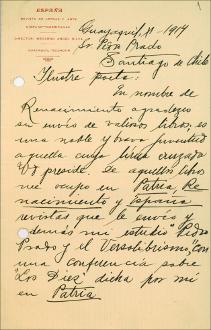 ESPAÑA
REVISTA DE LETRAS Y ARTE
GUAYAQUIL, ECUADOR
Guayaquil, 1919
Sr. Pedro Prado
Santiago de Chile
Ilustre poeta:
En nombre de
Renacimiento agradezco
su envío de valiosos libros; es
una noble y brava juventud
aquella cuya lírica cruzada
Ud preside. De aquellos libros
me ocupo en Patria, Re-
nacimiento y España
revistas que le envío y
además mi estudio "Pedro
Prado y el Versolibrismo", con
una conferencia sobre
"Los Diez" dicha por mí
en Patria